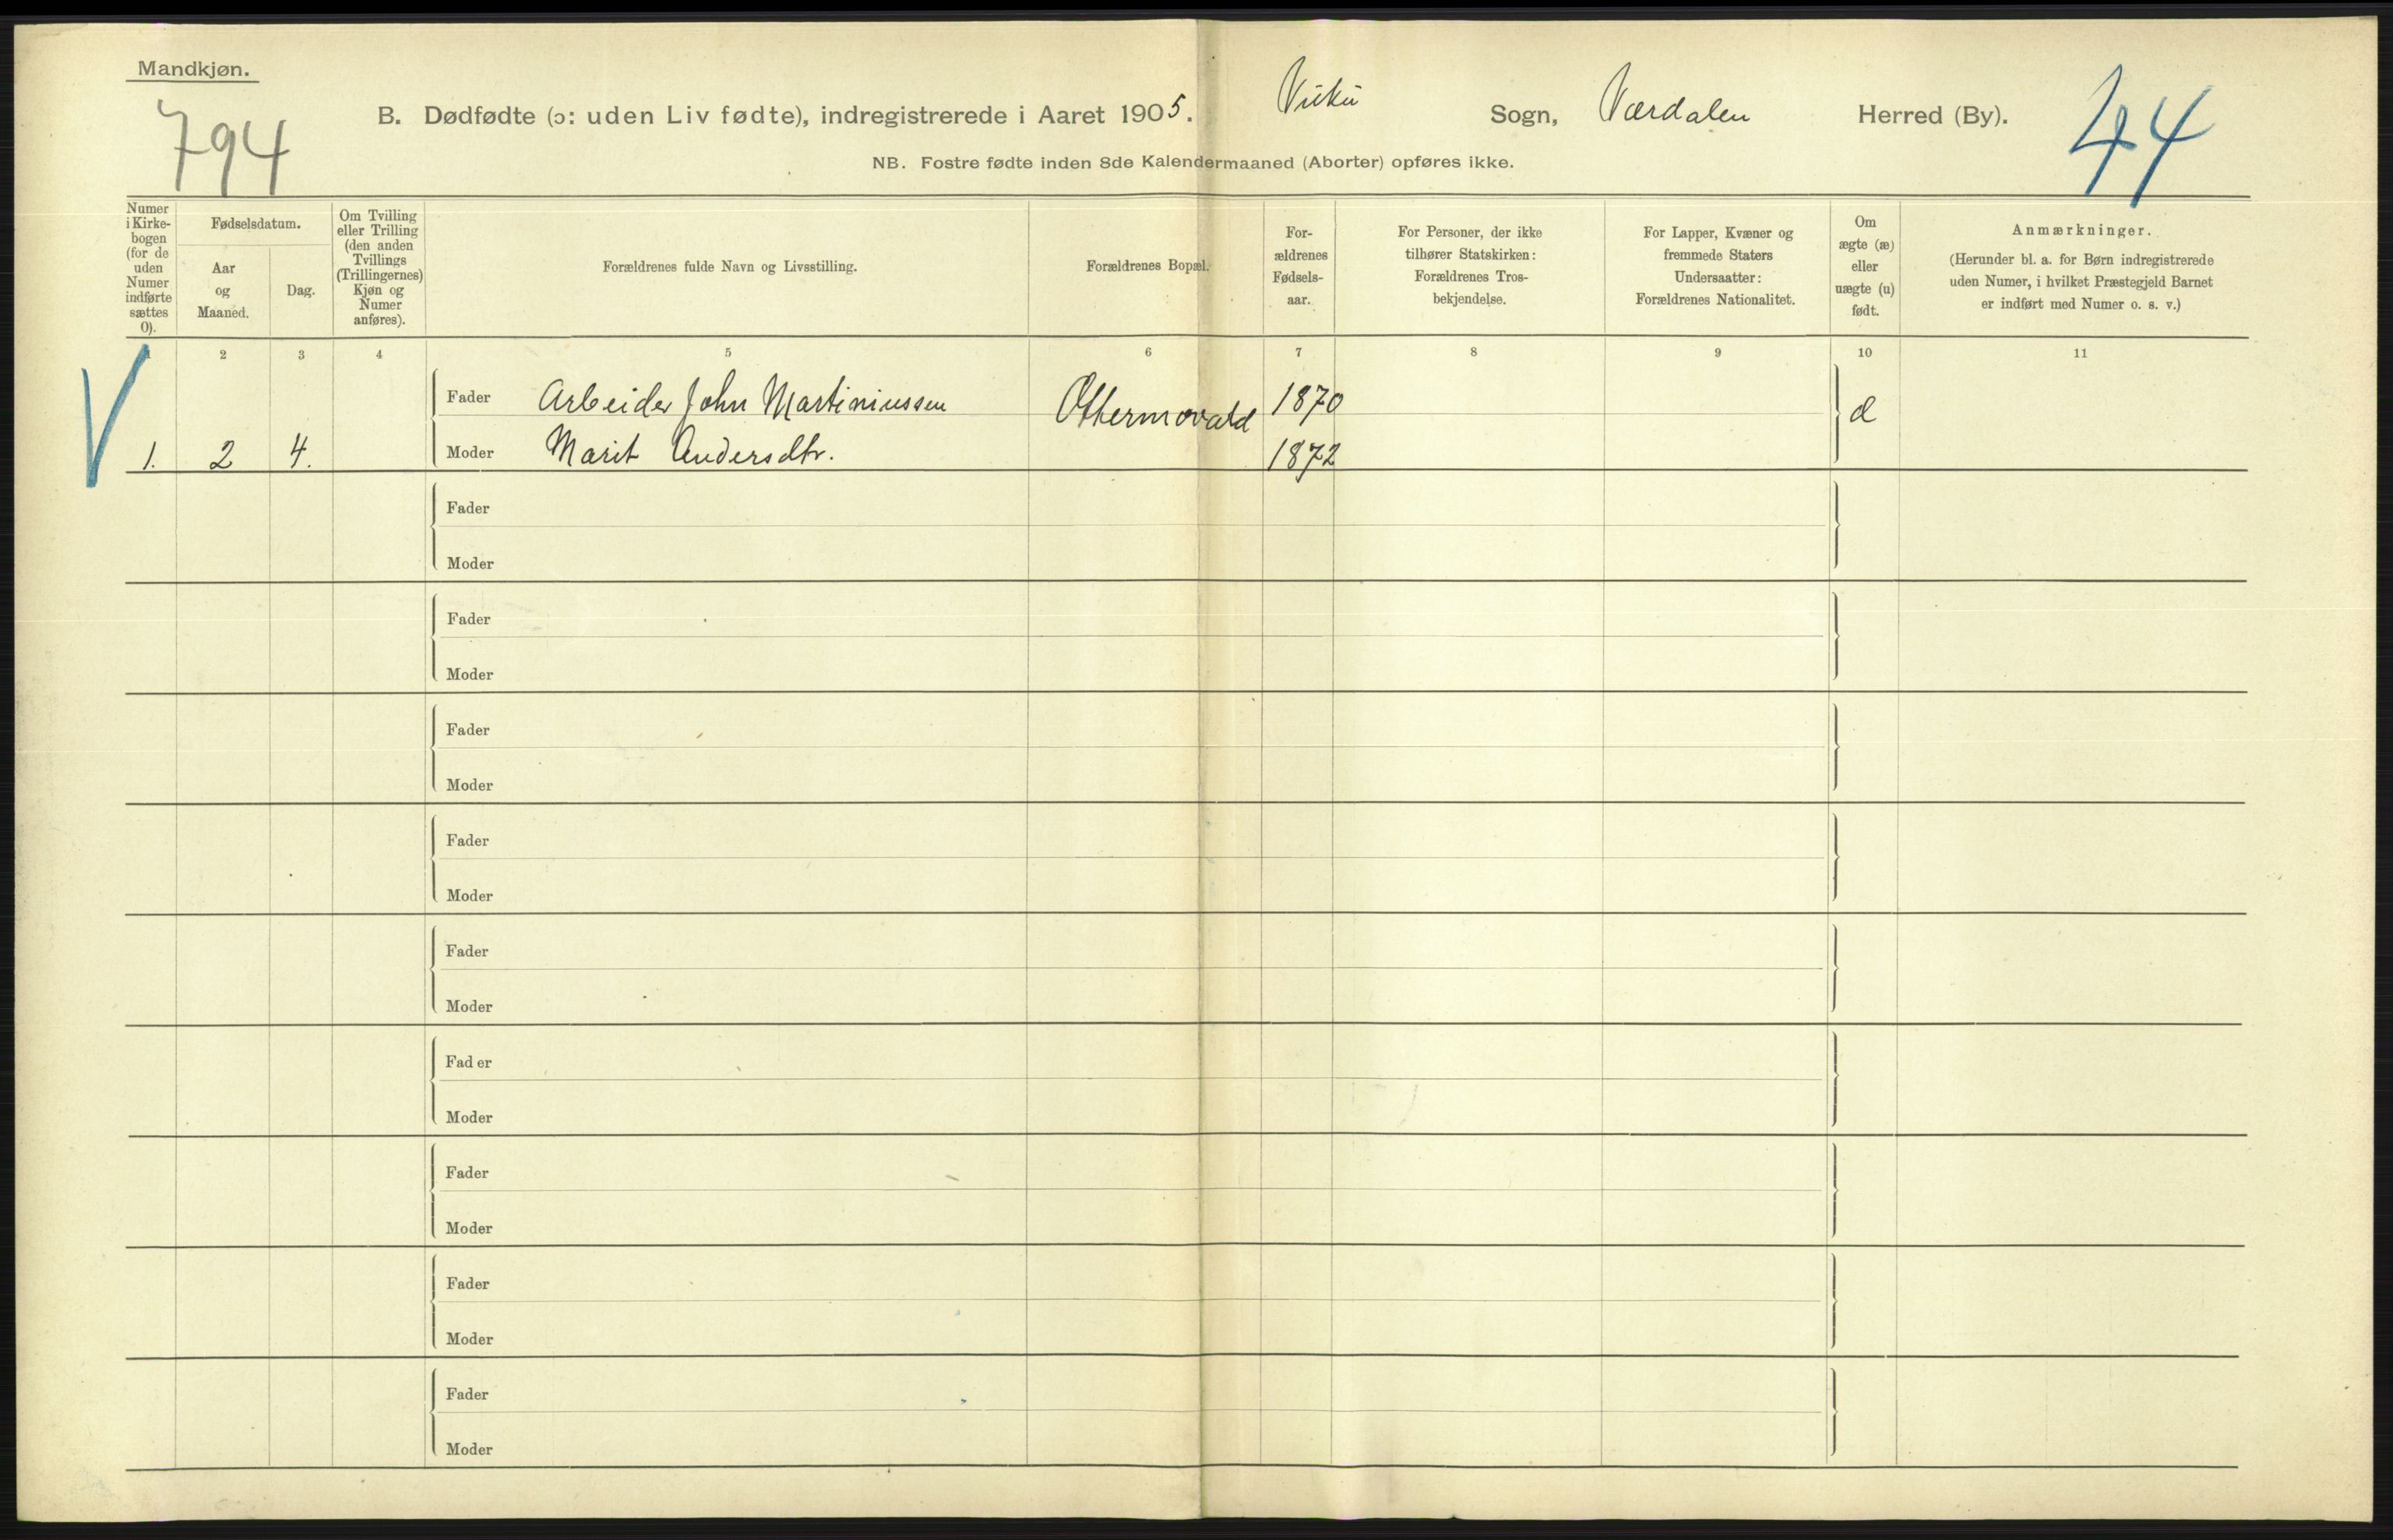 Mandkjøn.
794
B. Dødfødte (ɔ: uden Liv fødte), indregistrerede i Aaret 1905. Vuku Sogn, Værdalen Herred (By).
44
NB. Fostre fødte inden 8de Kalendermaaned (Aborter) opføres ikke.
Numer
i Kirke-
bogen
(for de
uden
Numer
indførte
sættes
0).
Fødselsdatum.
Aar
og
Maaned.
Dag.
Om Tvilling
eller Trilling
(den anden
Tvillings
(Trillingernes)
Kjøn og
Numer
anføres).
Forældrenes fulde Navn og Livsstilling.
Forældrenes Bopæl.
For-
ældrenes
Fødsels-
aar.
For Personer, der ikke
tilhører Statskirken:
Forældrenes Tros-
bekjendelse.
For Lapper, Kvæner og
fremmede Staters
Undersaatter:
Forældrenes Nationalitet.
Om
ægte (æ)
eller
uægte (u)
født.
Anmærkninger.
(Herunder bl. a. for Børn indregistrerede
uden Numer, i hvilket Præstegjeld Barnet
er indført med Numer o. s. v.)
1 2 3 4 5 6 7 8 9 10 11
Fader Arbeider John Martiniussen Othermovald 1870 æ
1. 2 4. Moder Marit Andersdtr. 1872
Fader
Moder
Fader
Moder
Fader
Moder
Fader
Moder
Fader
Moder
Fader
Moder
Fader
Moder
Fader
Moder
Fader
Moder